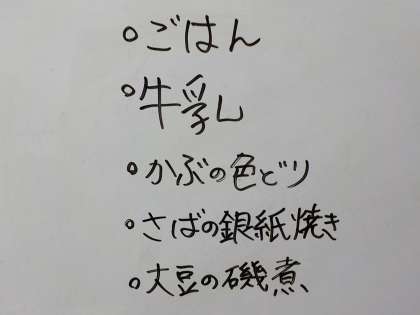 ○ごはん
○牛乳
○かぶの色どり
○さばの銀紙焼き
○大豆の磯煮